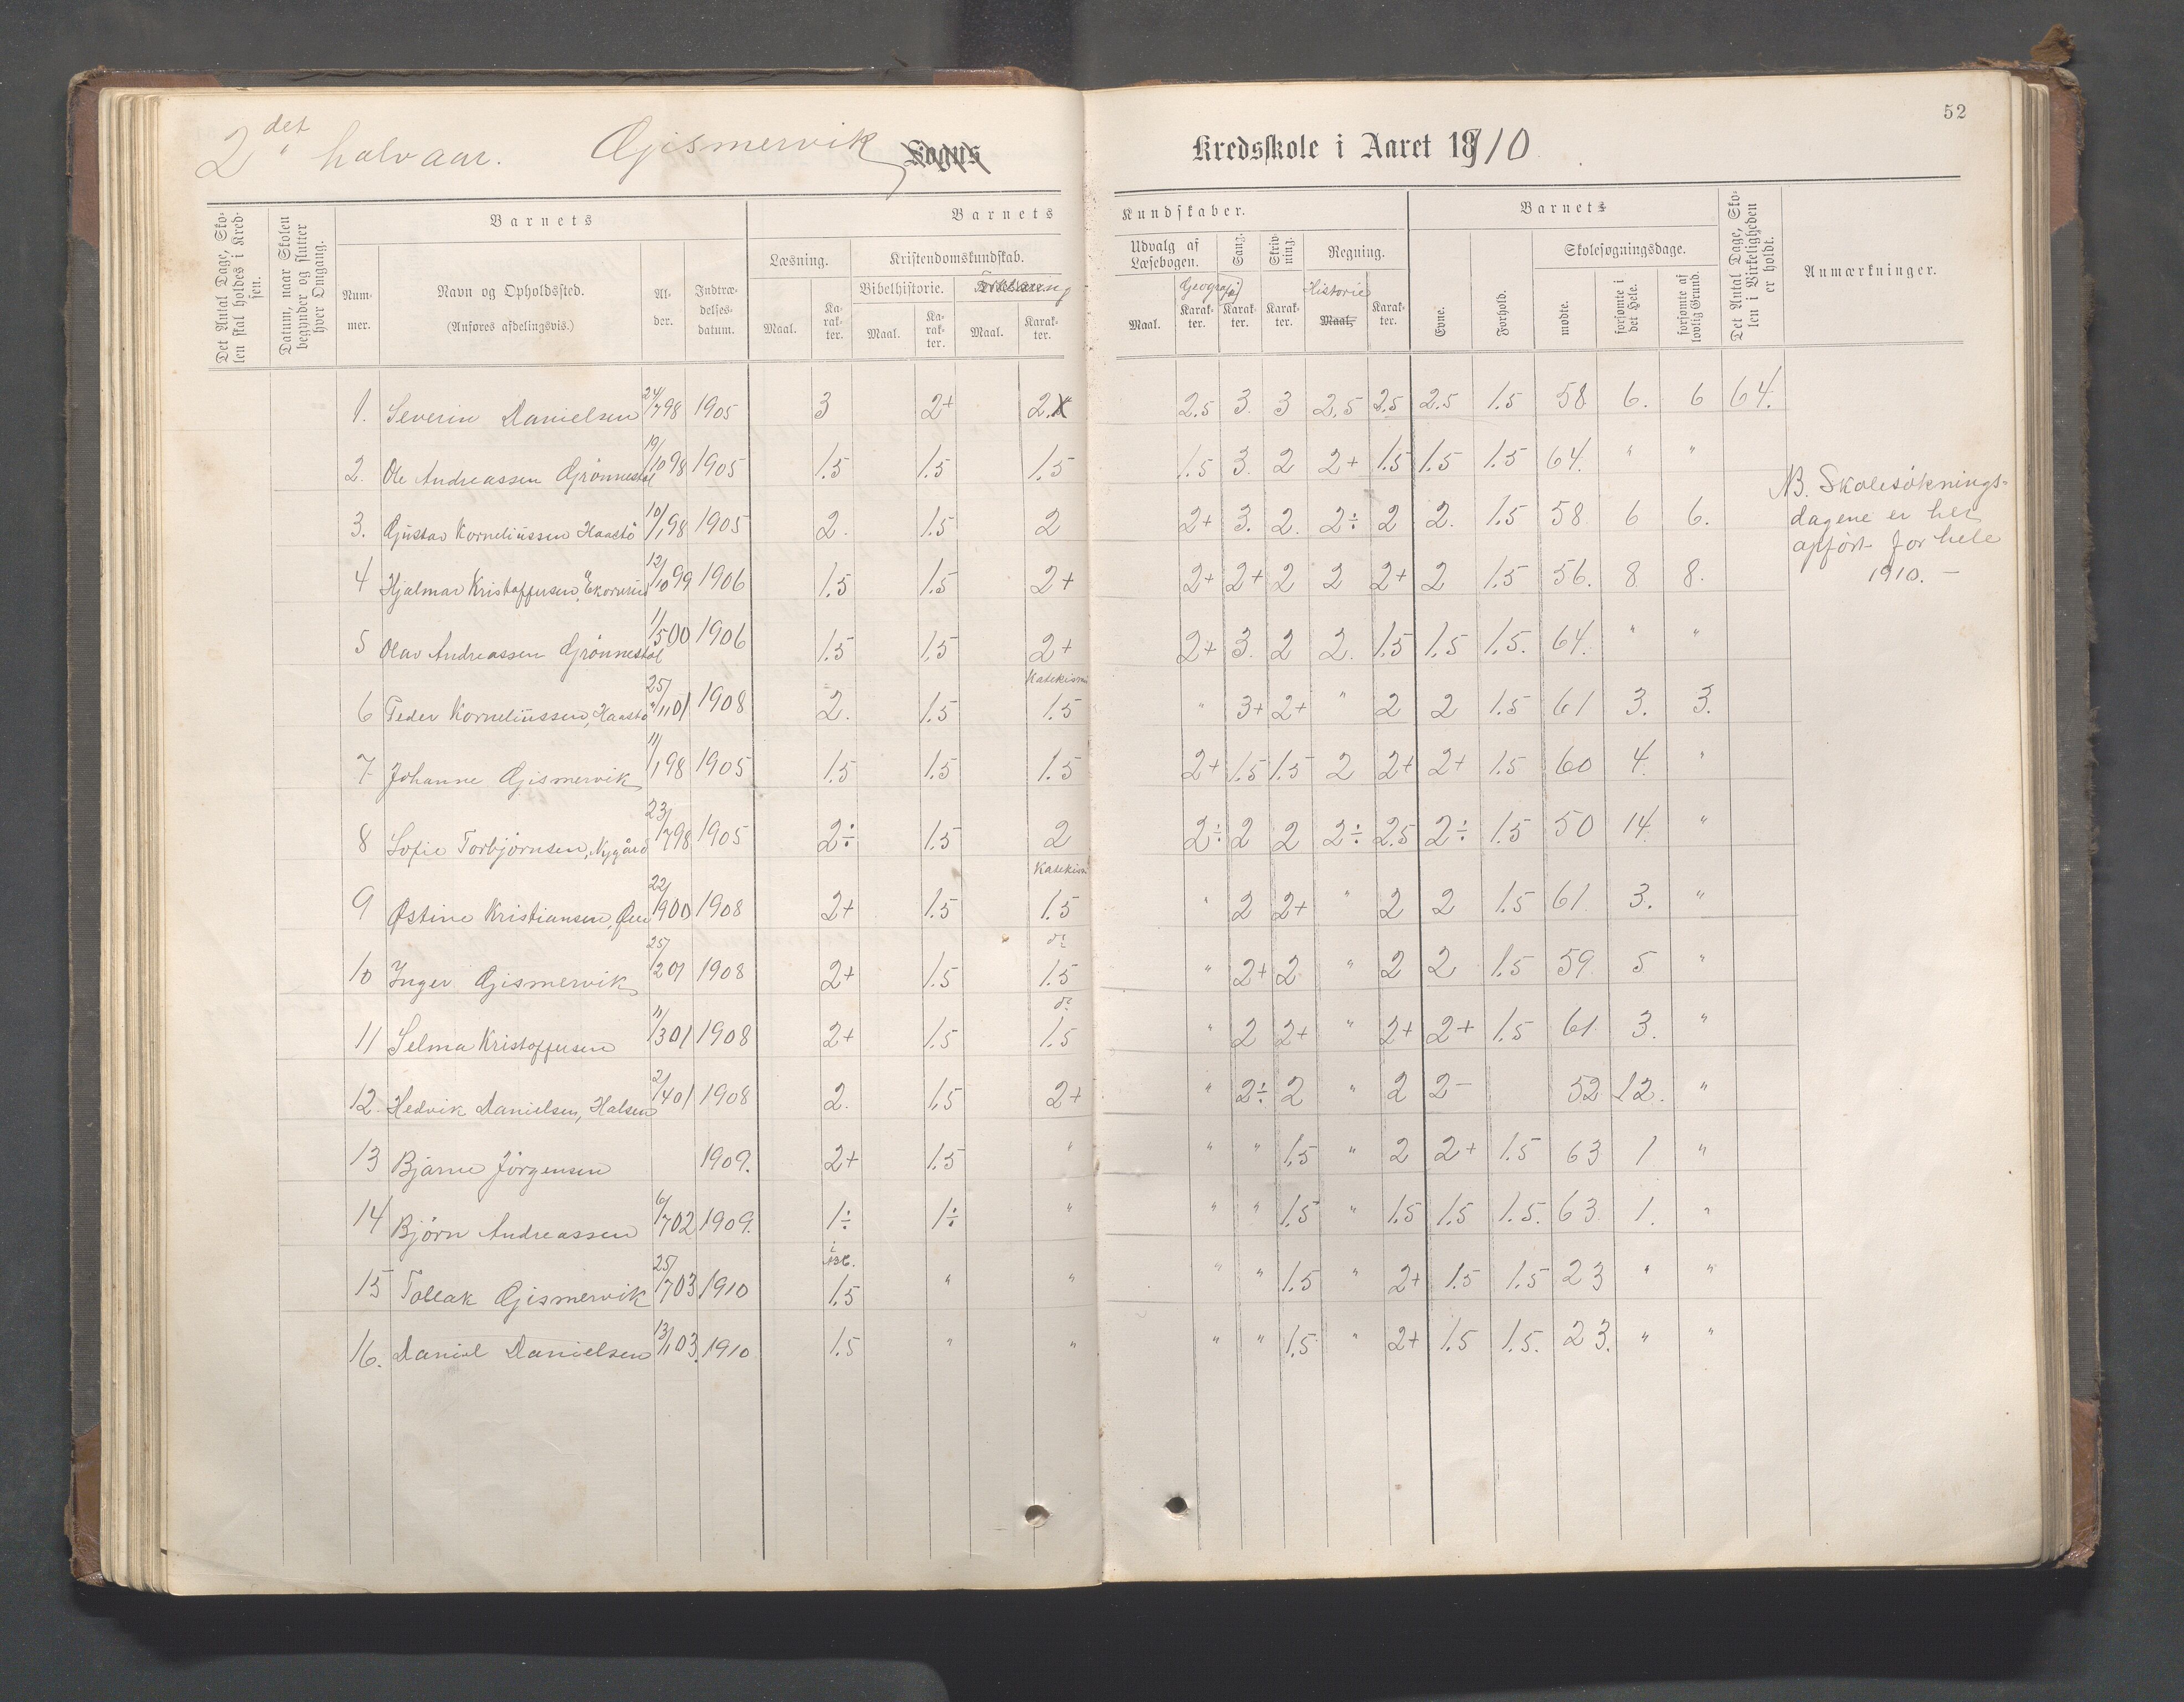 52
2det halvaar. Gjismervik Sogns Kredsskole i Aaret 1910
Det Antal Dage, Skolen skal holdes i Kredsen.
Datum, naar Skolen begynder og slutter hver Omgang.
Barnets
Barnets Kundskaber.
Barnets
Det Antal Dage, Skolen i Virkeligheden er holdt.
Anmærkninger.
Nummer.
Navn og Opholdssted.
(Anføres afdelingsvis.)
Alder.
Indtrædelsesdatum.
Læsning.
Kristendomskundskab.
Bibelhistorie.
Forklaring
Udvalg af Læsebogen.
Geografi
Sang.
Skrivning.
Regning.
Historie
Evne.
Forhold.
Skolesøgningsdage.
mødte.
forsømte i det Hele.
forsømte af lovlig Grund.
Maal. Karakter. Maal. Karakter. Maal. Karakter. Maal. Karakter. Karakter. Karakter. Maal. Karakter.
1. Severin Danielsen 24/7 98 1905 3 2+ 2. 2.5 3. 3 2.5 2.5 2.5 1.5 58 6. 6 64.
2. Ole Andreassen Grönnestøl 19/10 98 1905 1.5 1.5 1.5 1.5 3. 2 2+ 1.5 1.5 1.5 64. " "
3. Gustav Korneliussen Haastö 10/1 98 1905 2. 1.5 2 2+ 3. 2. 2÷ 2 2. 1.5 58 6 6.
4 Hjalmar Kristoffersen, 12/10 99 1906 1.5 1.5 2+ 2+ 2+ 2 2 2+ 2 1.5 56. 8. 8.
5 Olav Andreassen Grönnestøl 11/5 00 1906 1.5 1.5 2+ 2+ 3. 2 2. 1.5 1.5 1.5. 64. " "
Katekism
6 Peder Korneliussen, Haastö 25/11 01 1908 2. 1.5 1.5 " 3+ 2+ " 2 2 1.5 61 3. 3.
7 Johanne Gjismervik 11/1 98 1905 1.5 1.5 1.5 2+ 1.5 1.5 2 2+ 2+ 1.5 60 4. "
8 Sofie Torbjörnsen, Nygård 23/7 98 1905 2÷ 1.5 2 2÷ 2 2 2÷ 2.5 2÷ 1.5 50 14. "
Katekism
9 Østine Kristiansen, 22/9 00 1908 2+ 1.5 1.5 " 2 2+ " 2 2 1.5 61 3. "
do
10 Inger Gjismervik 25/2 01 1908 2+ 1.5 1.5 " 2+ 2 " 2 2 1.5 59 5 "
do
11 Selma Kristoffersen 11/3 01 1908 2+ 1.5 1.5 " 2 2+ " 2+ 2+ 1.5 61 3. "
12. Hedvik Danielsen, Halsen 2/4 01 1908 2. 1.5 2+ " 2÷ 2 " 2 2- 52 12. "
13 Bjarne Jörgensen 1909. 2+ 1.5 " " " 1.5 " 2 2+ 1.5 63 1 "
14 Björn Andreassen 6/7 02 1909. 1÷ 1÷ " " " 1.5 " 1.5 1.5 1.5. 63 1. "
15 Tollak Gjismervik 25/7 03 1910 1.5 " " " " 1.5 " 2+ 1.5 1.5 23 " "
16. Daniel Danielsen 13/1 03. 1910 1.5 " " " " 1.5 " 2+ 1.5 1.5. 23. " "
NB. Skolesöknings-
dagene er her
opfört for hele
1910. –